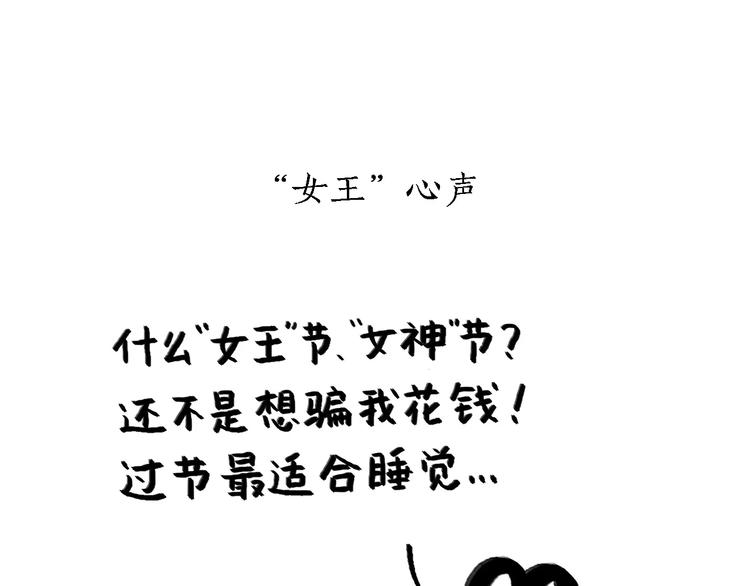 “女王”心声
什么“女王”节、“女神”节？
还不是想骗我花钱！
过节最适合睡觉...